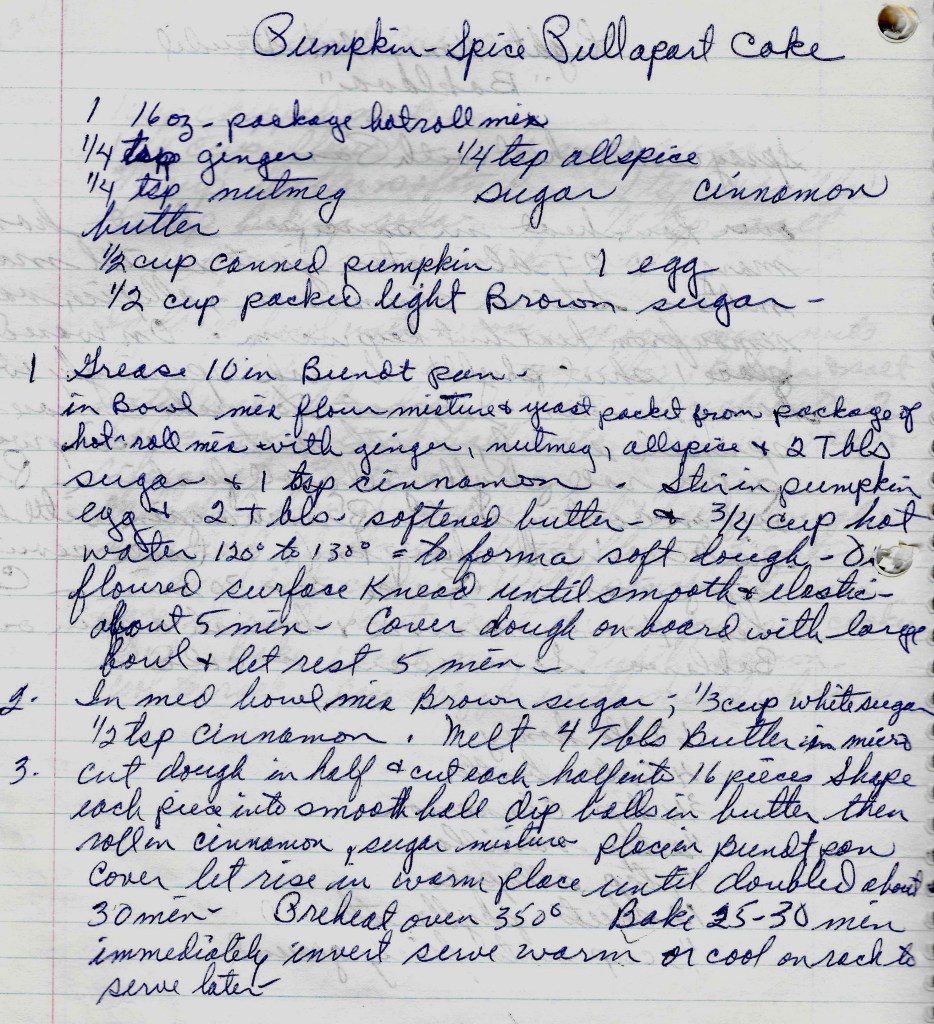 Pumpkin-Spice Pullapart Cake
1 16oz - package hot roll mix
1/4 tsp ginger 1/4 tsp allspice
1/4 tsp nutmeg sugar cinnamon
butter
1/2 cup canned pumpkin 1 egg
1/2 cup packed light Brown sugar -
1 Grease 10 in Bundt pan -
in Bowl mix flour mixture & yeast packet from package of
hot-roll mix with ginger, nutmeg, allspice & 2 Tbls
sugar & 1 tsp cinnamon. Stir in pumpkin
egg & 2 Tbls. softened butter - & 3/4 cup hot
water 120° to 130° = to form a soft dough - On
floured surface Knead until smooth & elastic -
about 5 min - Cover dough on board with large
bowl & let rest 5 min -
2. In med bowl mix Brown sugar; 1/3 cup white sugar
1/2 tsp cinnamon. Melt 4 Tbls Butter in micro
3. Cut dough in half & cut each half into 16 pieces Shape
each piece into smooth ball dip balls in butter then
roll in cinnamon, sugar mixture place in Bundt pan
Cover let rise in warm place until doubled about
30 min - Preheat oven 350° Bake 25-30 min
immediately invert serve warm or cool on rack to
serve later -